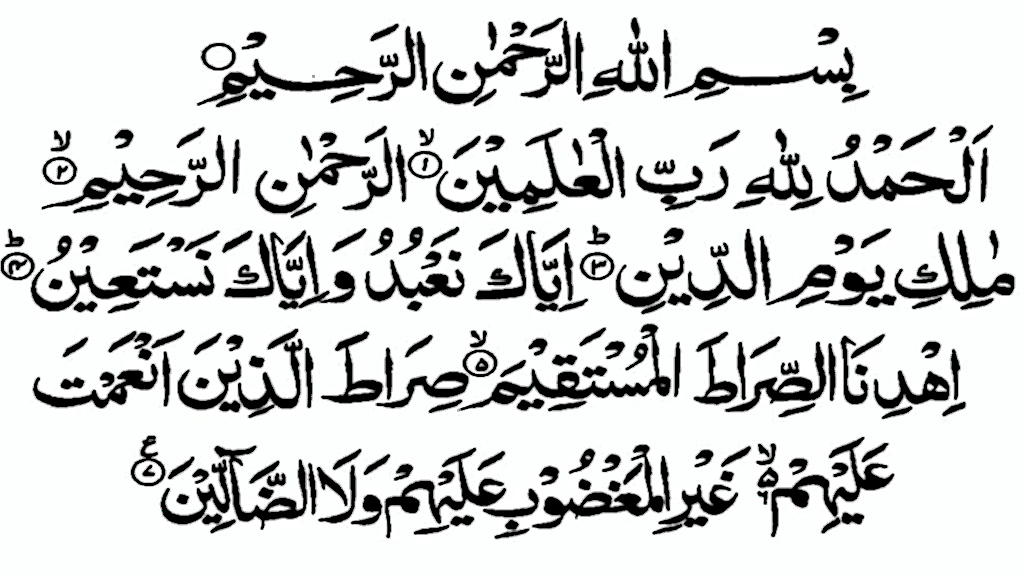 بِسْــمِ اللهِ الرَّحْمٰنِ الرَّحِــيْمِ ○
اَلْحَمْدُ لِلّٰهِ رَبِّ الْعٰلَمِيْنَ ۙ﴿۱﴾ الرَّحْمٰنِ الرَّحِيْمِ ۙ﴿۲﴾
مٰلِكِ يَوْمِ الدِّيْنِ ؕ﴿۳﴾ اِيَّاكَ نَعْبُدُ وَاِيَّاكَ نَسْتَعِيْنُ ؕ﴿۴﴾
اِهْدِنَا الصِّرَاطَ الْمُسْتَقِيْمَ ۙ﴿۵﴾ صِرَاطَ الَّذِيْنَ اَنْعَمْتَ
عَلَيْهِمْ ۙ۵﴿۶﴾ غَيْرِ الْمَغْضُوْبِ عَلَيْهِمْ وَلَا الضَّآلِّيْنَ ﴿۷﴾ ع